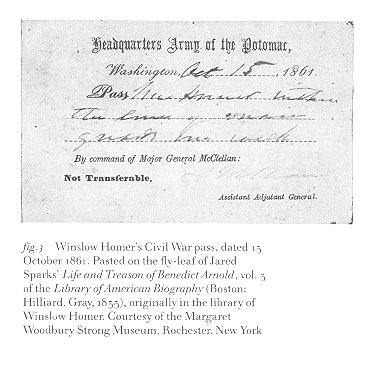 Headquarters Army of the Potomac,
Washington, Oct 15, 1861.
Pass Mr Homer within
the lines of main
guard one week
By command of Major General McClellan:
Not Transferable.
Assistant Adjutant General.
fig.3 Winslow Homer's Civil War pass, dated 15
October 1861. Pasted on the fly-leaf of Jared
Sparks' Life and Treason of Benedict Arnold, vol. 3
of the Library of American Biography (Boston:
Hilliard, Gray, 1835), originally in the library of
Winslow Homer. Courtesy of the Margaret
Woodbury Strong Museum, Rochester, New York